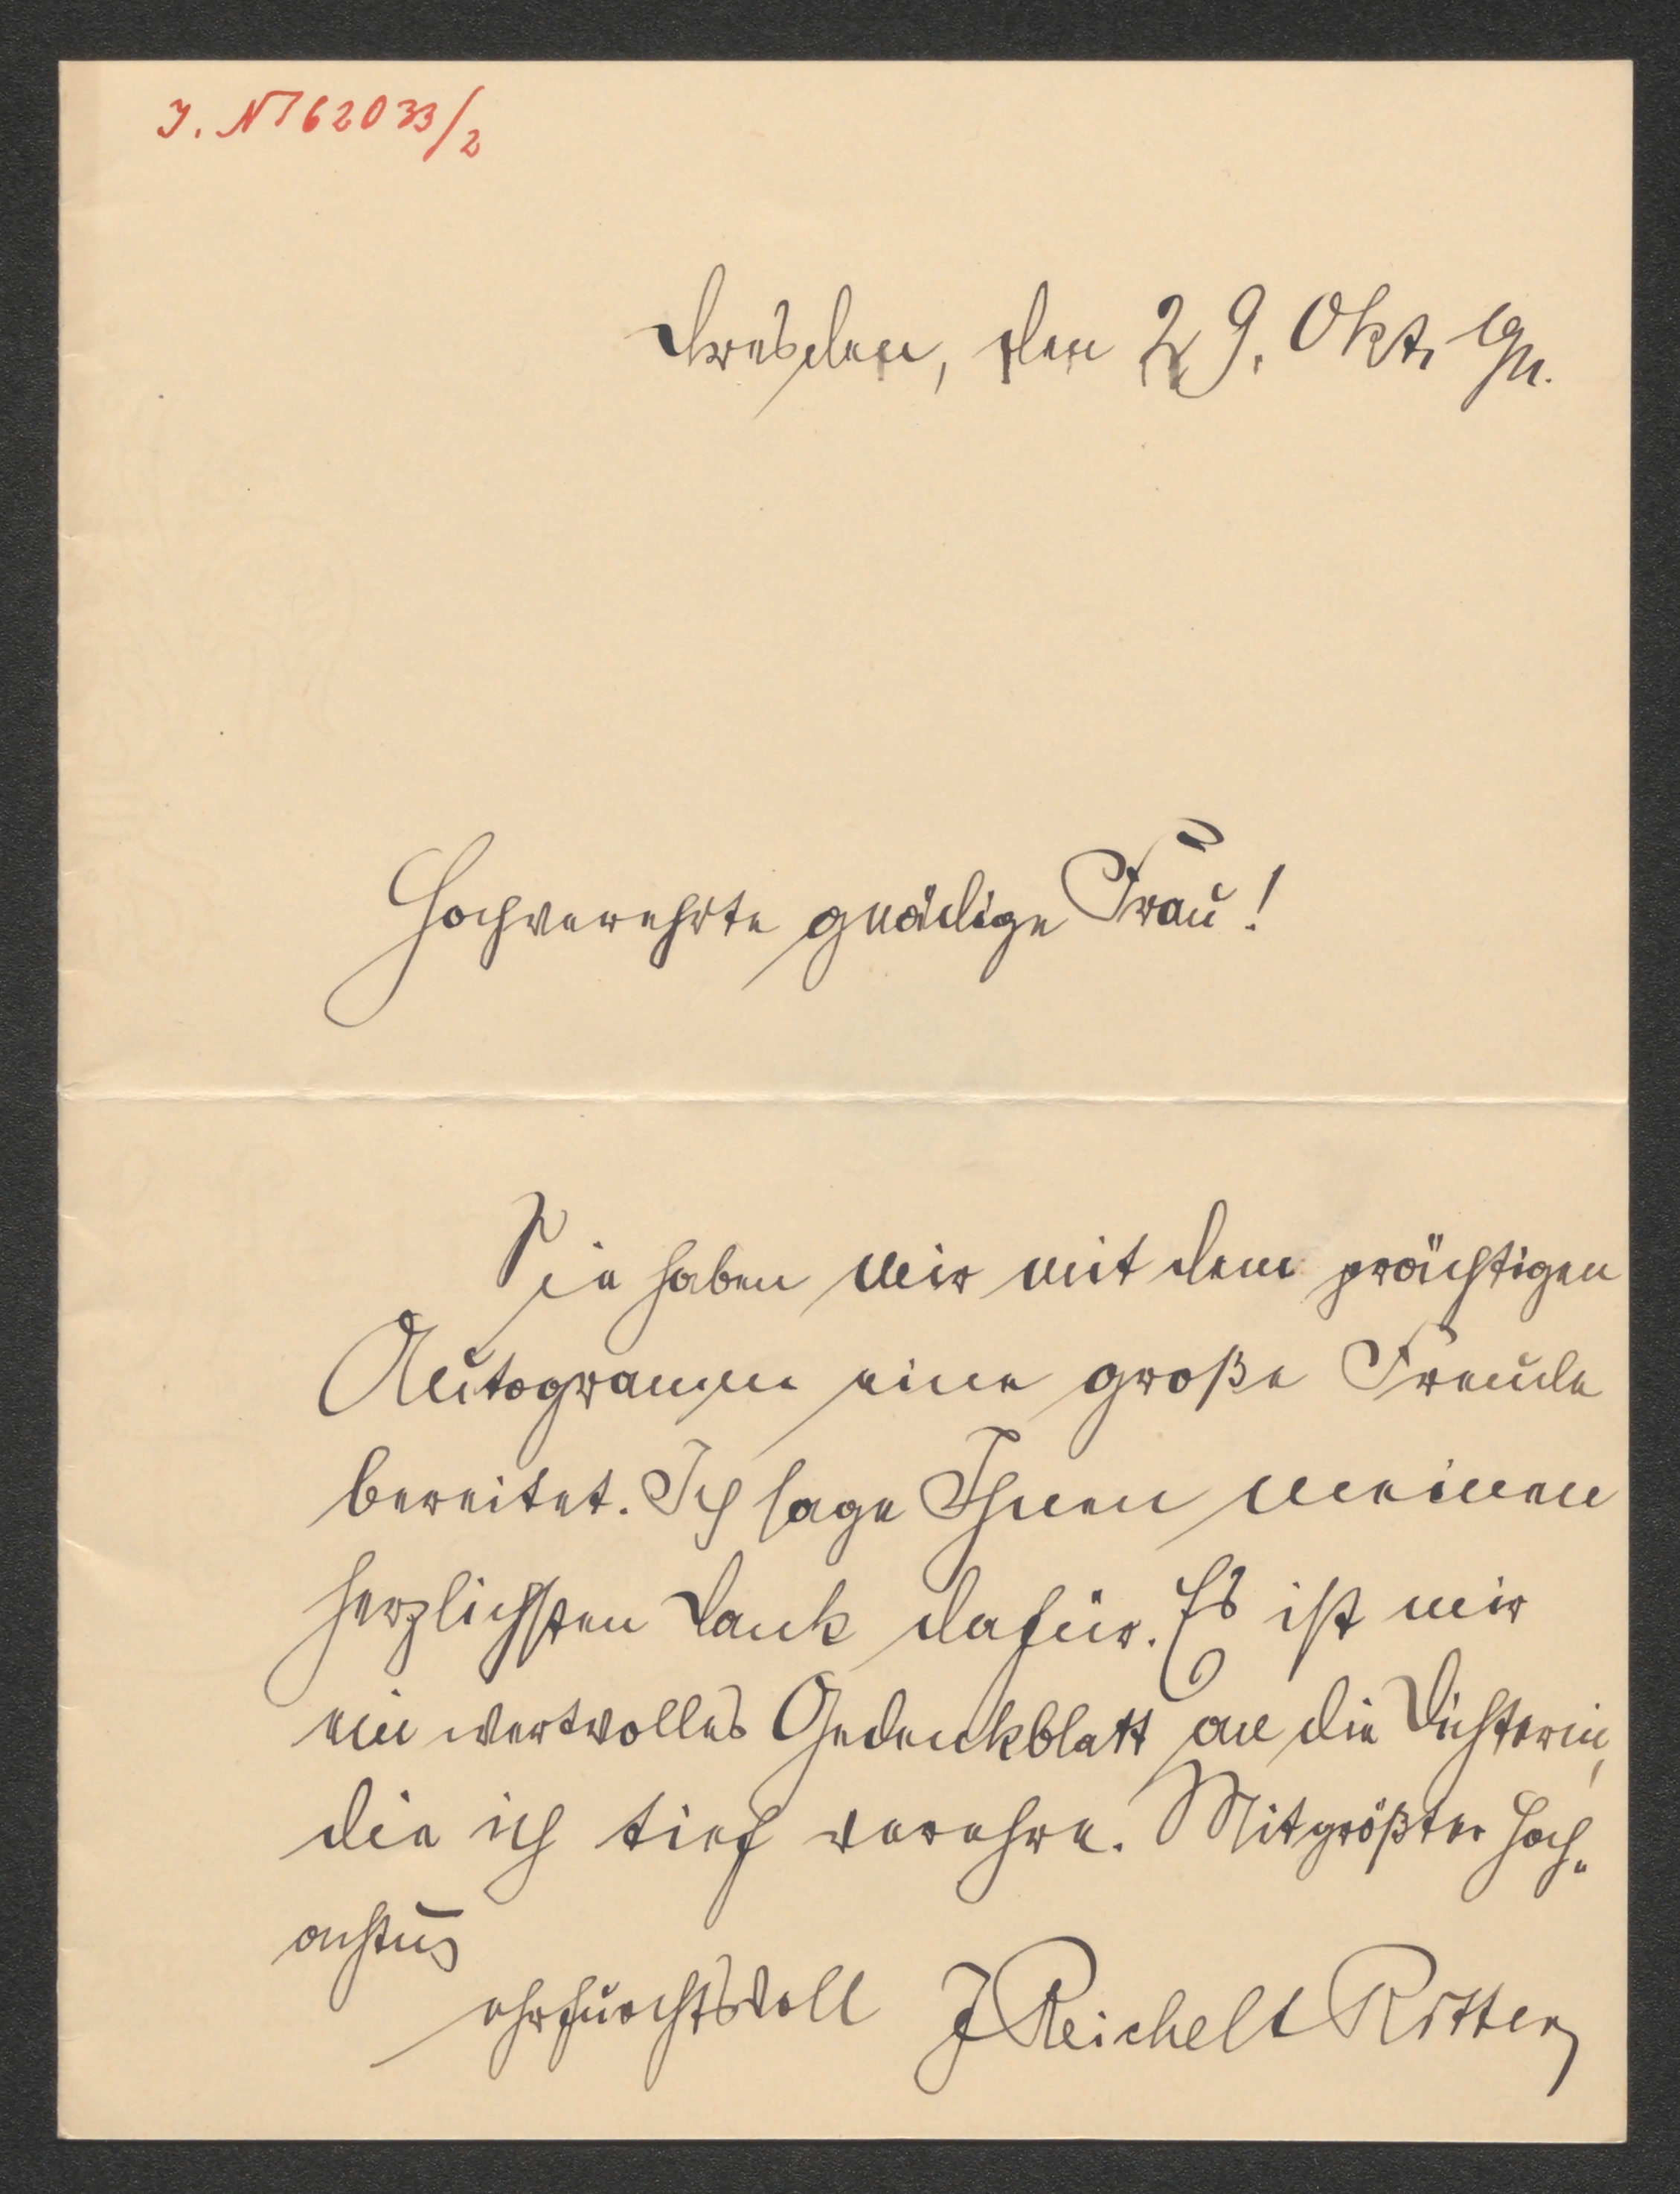 J. N 62033/2
Dresden, den 29. Okt. 911.
Hochverehrte gnädige Frau!
Sie haben mir mit dem prächtigen
Autogramm eine große Freude
bereitet. Ich sage Ihnen meinen
herzlichsten Dank dafür. Es ist mir
ein wertvolles Gedenkblatt an die Dichterin,
die ich tief verehre. Mit größter Hoch-
achtung
ehrfurchtsvoll J Reichelt Ritter